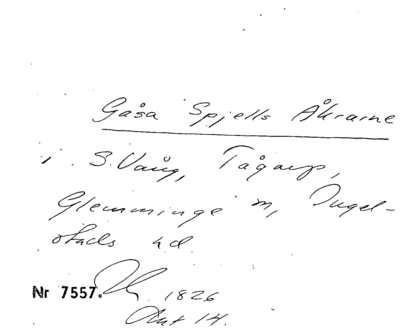 Gåsa Spjells Åkrarne
i S. Vång, Tågarp,
Glemminge sn, Ingel-
stads hd.
Nr 7557. 1826
Akt 14.